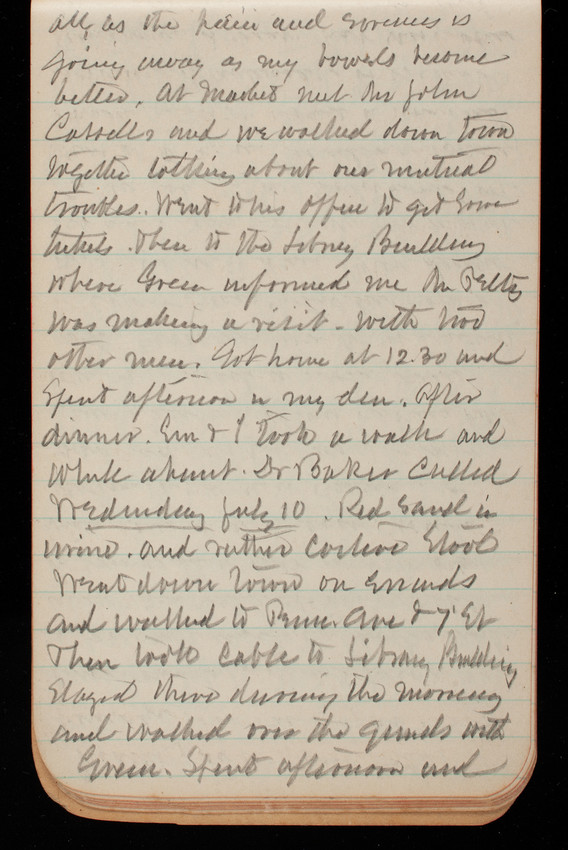 all, as the pain and soreness is
going away as my bowels become
better. At Market met Mr John
Cassells and we walked down town
together talking about our mutual
troubles. Went to his office to get some
tickets. Then to the Library Building
where Green informed me Mr Peltz
was making a visit - with two
other men. Got home at 12.30 and
spent afternoon in my den. After
dinner. Em & I took a walk and
while absent. Dr Baker called
Wednesday July 10. Red sand in
urine. and rather costive stool
Went down town on errands
and walked to Penn. Ave & 7' St
Then took cable to Library Building
Stayed there during the morning
and walked over the grounds with
Green. Spent afternoon and